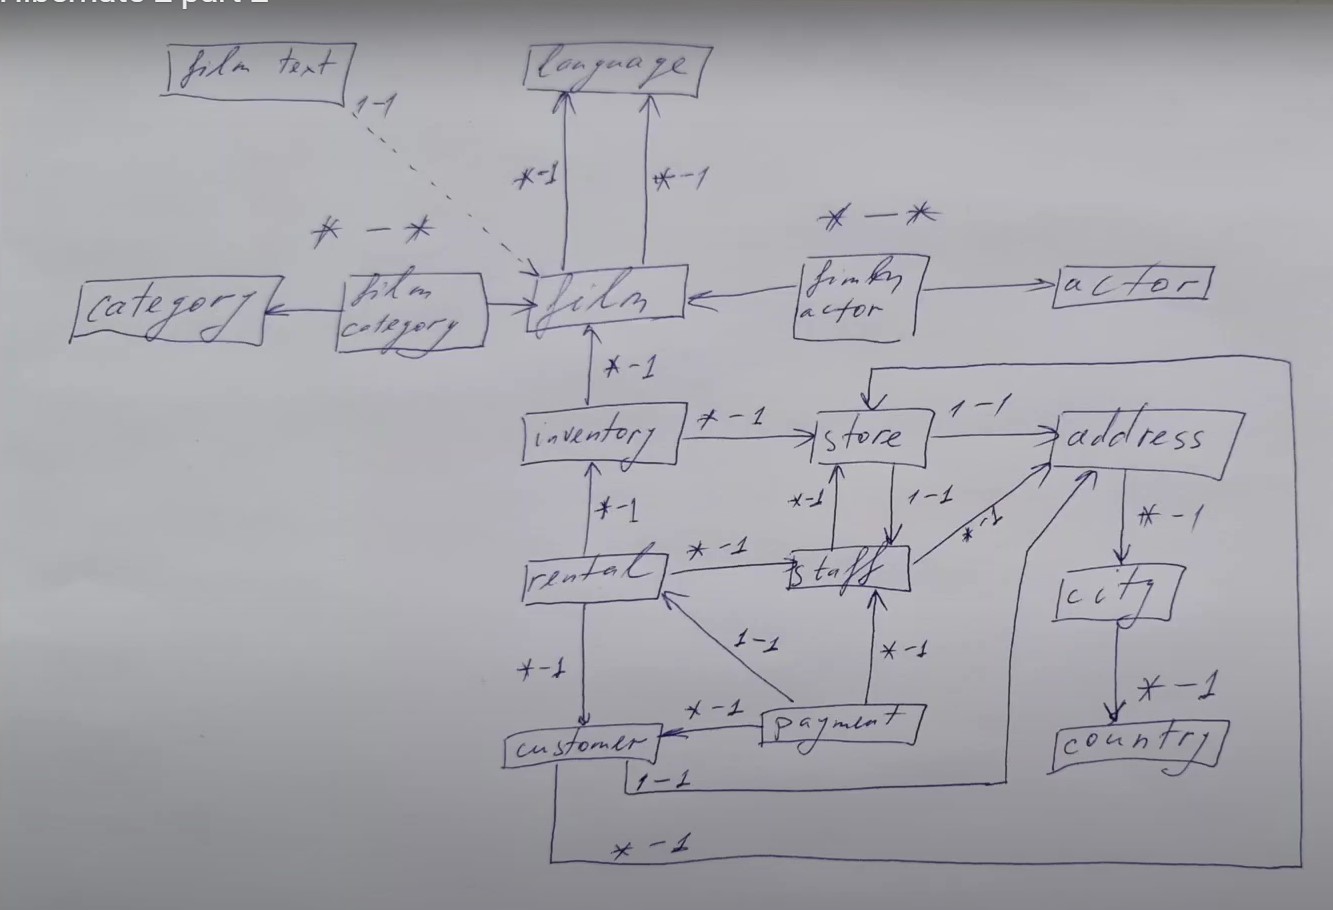 film text
language
1-1
*-1
*-1
* - *
* - *
category
film
category
film
actor
actor
*-1
inventory
*-1
store
1-1
address
*-1
*-1
1-1
*-1
*-1
rental
*-1
staff
city
*-1
1-1
*-1
*-1
*-1
customer
payment
country
1-1
*-1